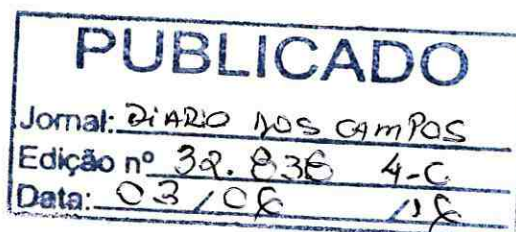 PUBLICADO
Jornal: DiARIO DOS CAMPOS
Edição nº 32.836 4-C
Data: 03/06/16